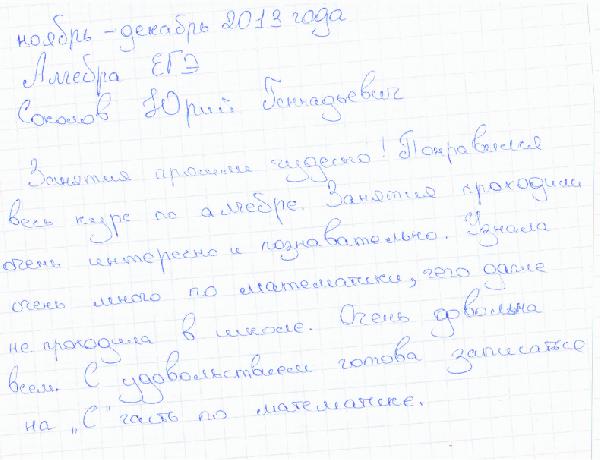 ноябрь – декабрь 2013 года
Алгебра ЕГЭ
Соколов Юрий Геннадьевич
Занятия прошли чудесно! Понравился
весь курс по алгебре. Занятия проходили
очень интересно и познавательно. Узнала
очень много по математики, чего даже
не проходила в школе. Очень довольна
всем. С удовольствием готова записаться
на „С" часть по математике.